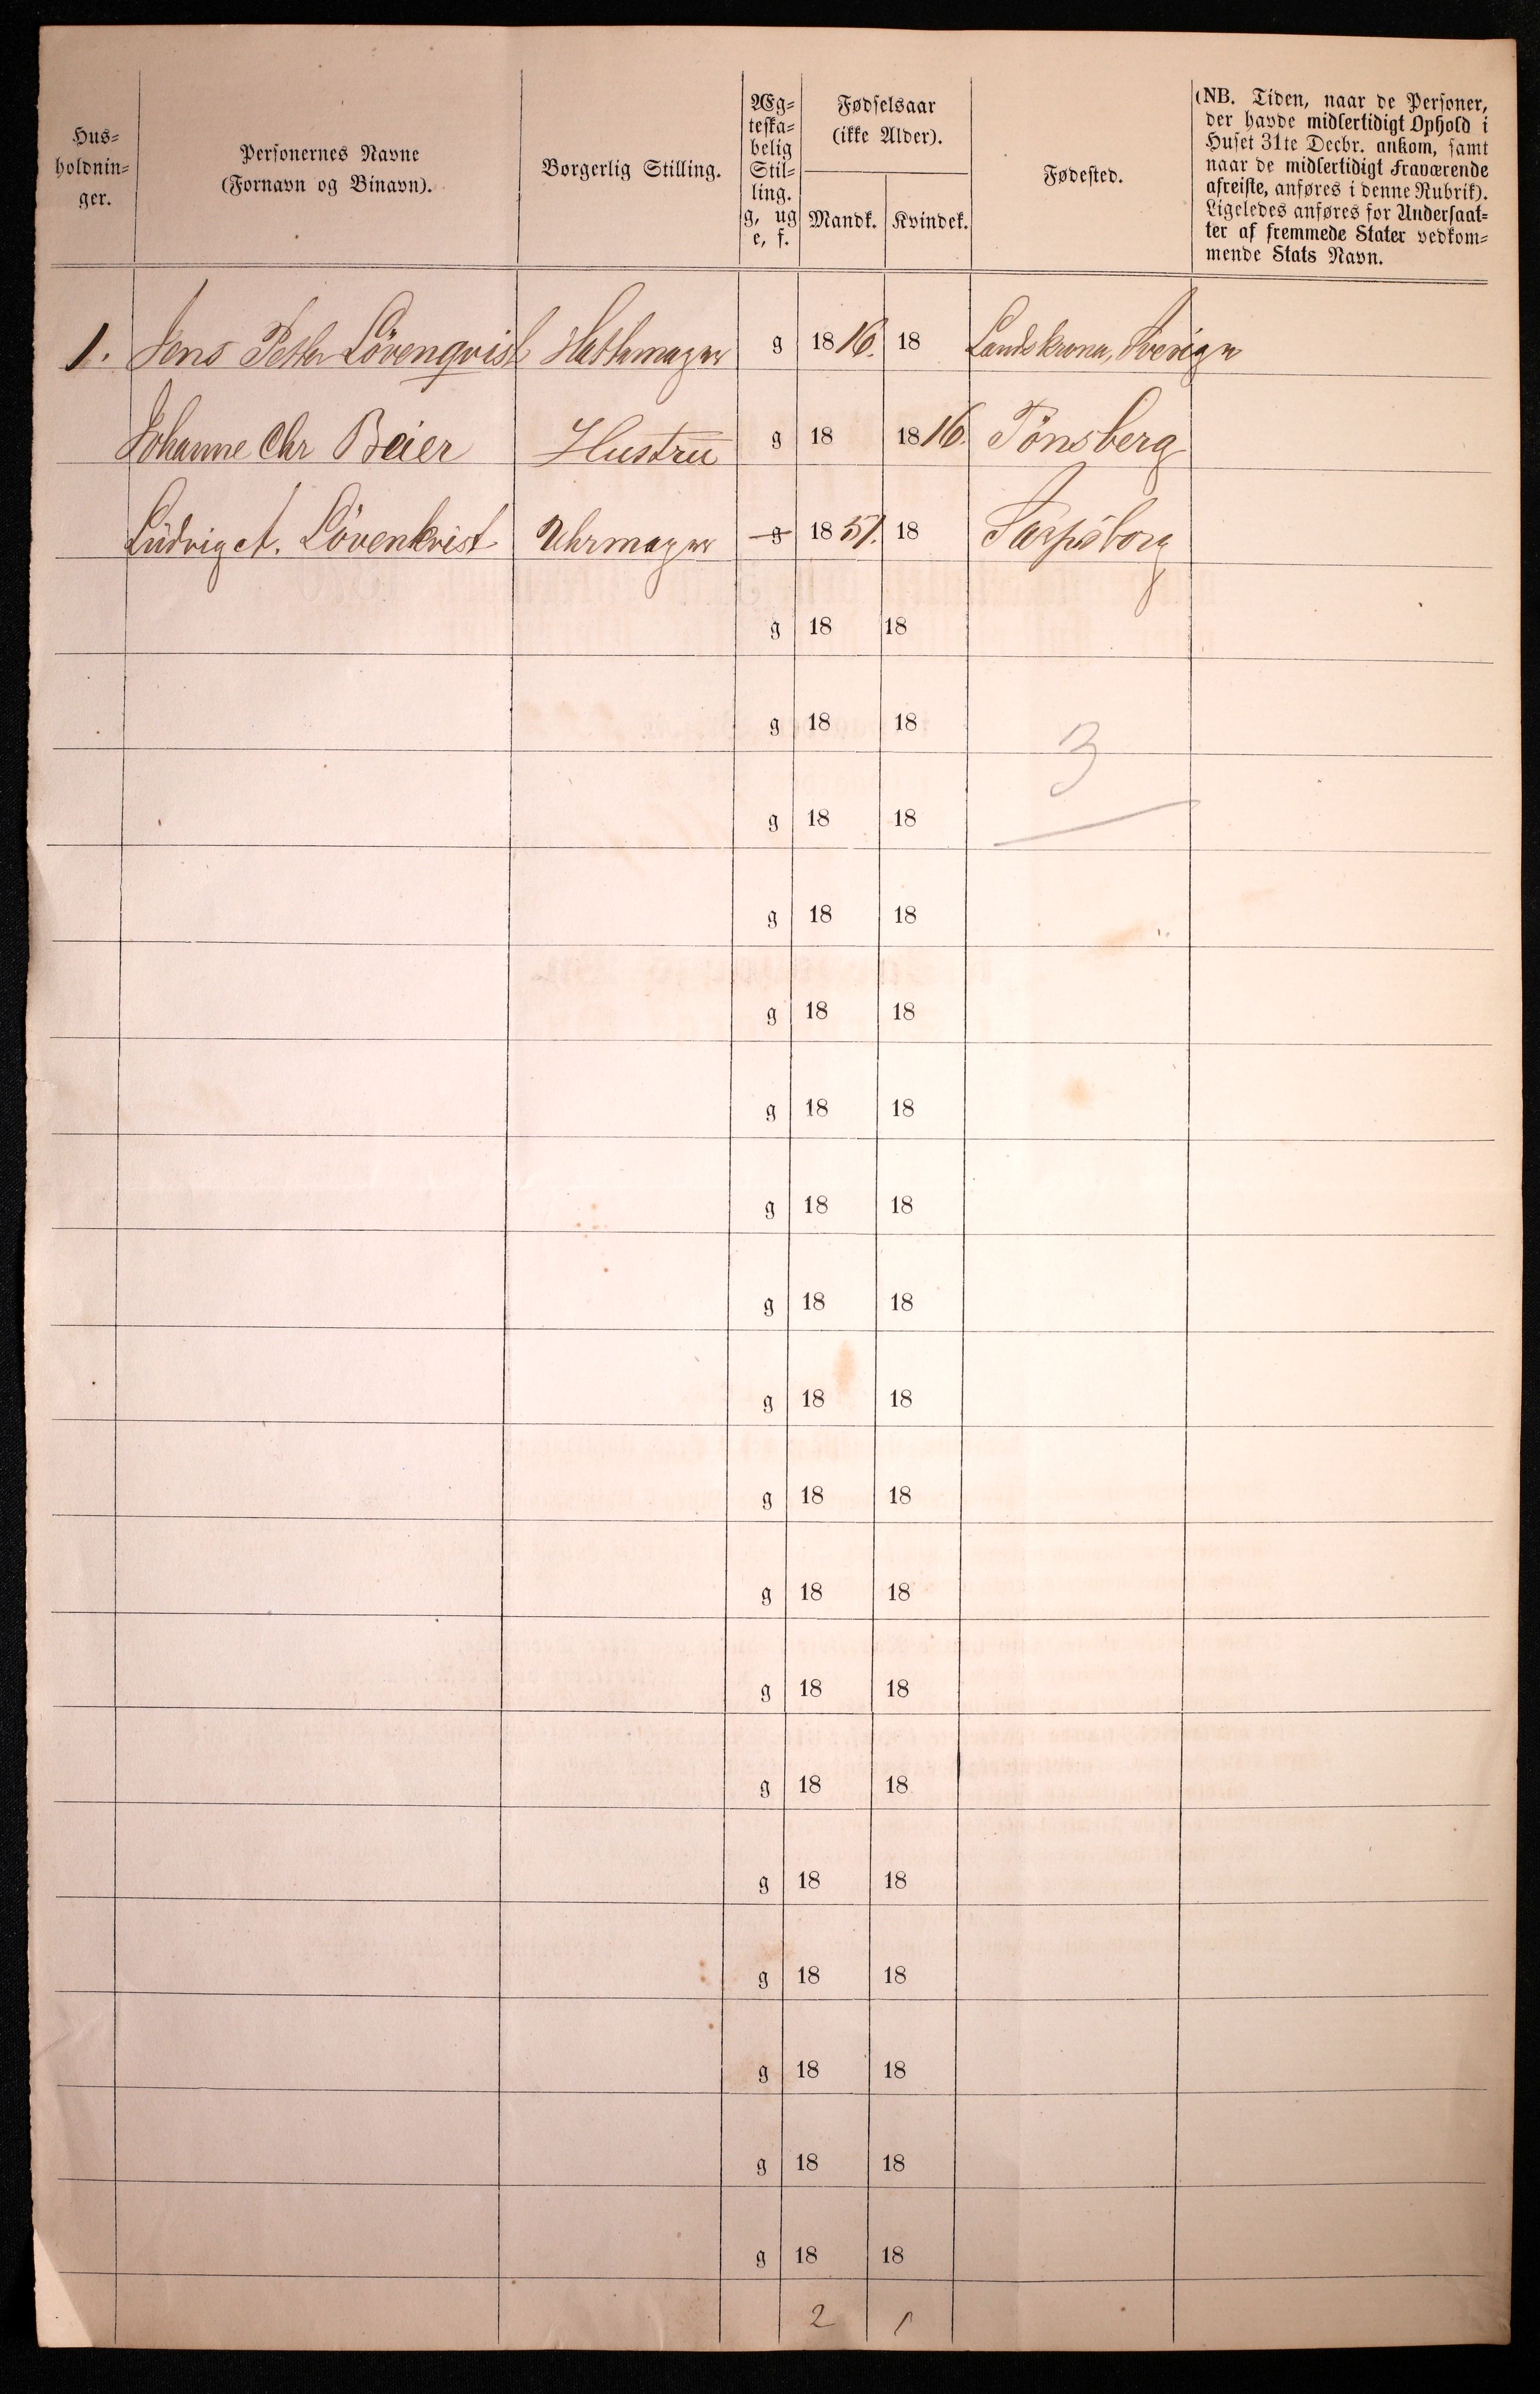 Hus-
holdnin-
ger.
Personernes Navne
(Fornavn og Binavn).
Borgerlig Stilling.
Æg-
teska-
belig
Stil-
ling.
g, ug
e, f.
Fødselsaar
(ikke Alder).
Mandk. Kvindek.
Fødested.
(NB. Tiden, naar de Personer,
der havde midlertidigt Ophold i
Huset 31te Decbr. ankom, samt
naar de midlertidigt Fraværende
afreiste, anføres i denne Rubrik).
Ligeledes anføres for Undersaat-
ter af fremmede Stater vedkom-
mende Stats Navn.
1. Jens Petter Lövenqvist Hattemager g 1816. 18 Landskrona, Sverige
Johanne Chr Beier Hustru g 18 1816. Tönsberg
Ludvig A. Lövenkvist Uhrmager g 1851. 18 Sarpsborg
g 18 18
g 18 18
3
g 18 18
g 18 18
g 18 18
g 18 18
g 18 18
g 18 18
g 18 18
g 18 18
g 18 18
g 18 18
g 18 18
g 18 18
g 18 18
g 18 18
g 18 18
g 18 18
2 1